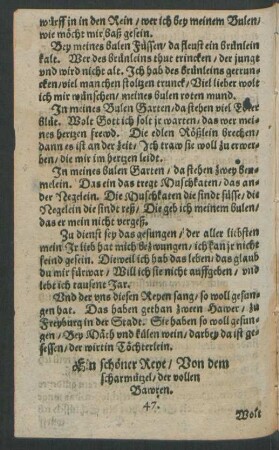 würff in in den Rein / wer ich bey meinem Bulen /
wie möcht mir baß gesein.
Bey meines bulen Füssen / da fleust ein brünlein
kalt. Wer des brünleins thut trincken / der jungt
und wird nicht alt. Ich hab des brünleins getrun-
cken / viel manchen stoltzen trunck / Viel lieber wolt
ich mir wünschen / meines bulen roten mund.
In meines Bulen Garten / da stehen viel
blüt. Wolt Gott ich solt jr warten / das wer mei-
nes hertzen frewd. Die edlen Rößlein brechen /
dann es ist an der zeit / Ich traw sie woll zu erwer-
ben / die mir im hertzen leidt.
In meines bulen Garten / da stehen zwey Beu-
melein. Das ein das tregt Muschkaten / das an-
der Negelein. Die Muschkaten die sinde süsse / die
Negelein die sindt reß / Die geb ich meinem bulen /
das er mein nicht vergeß.
Zu dienst sey das gesungen / der aller liebsten
mein Jr lieb hat mich bezwungen / ich kan jr nicht
feind gesein. Dieweil ich hab das leben / das glaub
du mir fürwar / Will ich sie nicht auffgeben / vnd
lebt ich tausent Jar.
Vnd der vns diesen Reyen sang / so woll gesun-
gen hat. Das haben gethan zween Hawer / zu
Freyburg in der Stadt. Sie haben so woll gesun-
gen / Bey Mäth vnd külen wein / darbey da ist ge-
sessen / der wirtin Töchterlein.
Ein schöner Reye / Von dem
scharmützel / der vollen
Bawren.
47.
Wolt